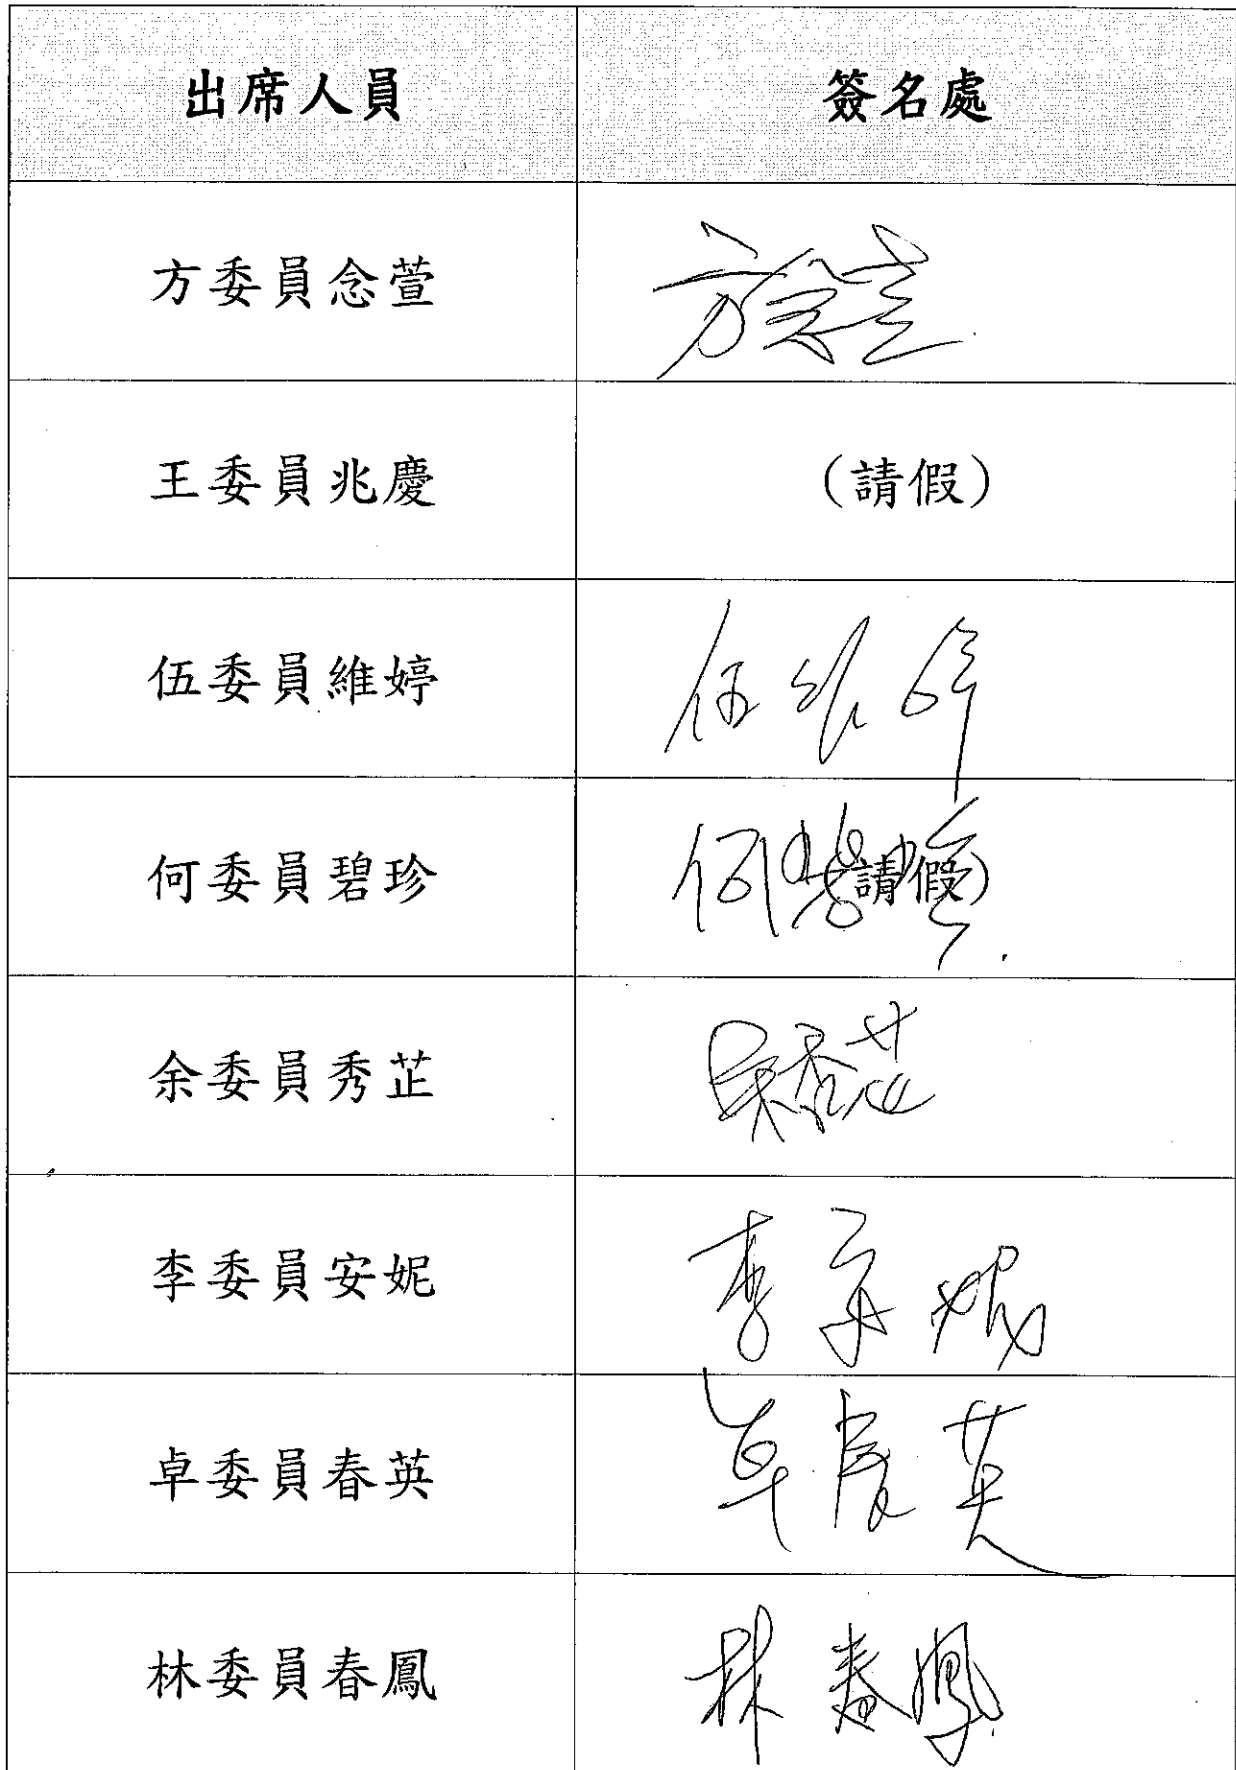 出席人員 簽名處
方委員念萱 方念萱
王委員兆慶 (請假)
伍委員維婷 伍維婷
何委員碧珍 何碧珍 (請假)
余委員秀芷 余秀芷
李委員安妮 李安妮
卓委員春英 卓春英
林委員春鳳 林春鳳